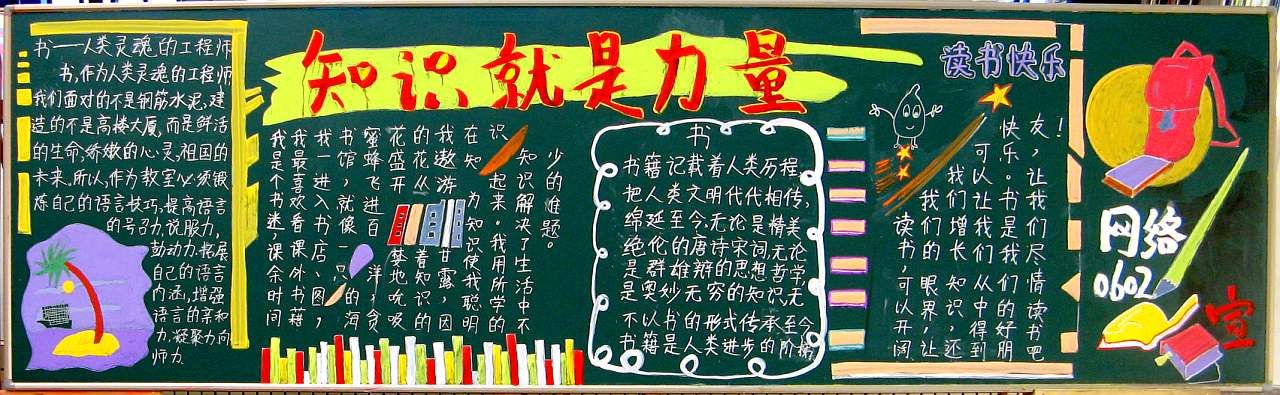 书——人类灵魂的工程师
书,作为人类灵魂的工程师
我们面对的不是钢筋水泥,建
造的不是高楼大厦,而是鲜活
的生命,娇嫩的心灵,祖国的
未来。所以,作为教室必须锻
炼自己的语言技巧,提高语言
的号召力,说服力,
鼓动力,拓展
自己的语言
内涵,增强
语言的亲和
力,凝聚力,向
师力.
知识就是力量
我是个书迷,课余时间
我最喜欢看课外书籍
我一进入书店、图
书馆,就像一只
蜜蜂飞进百
花盛开
的花丛
我遨游
在知
识
的海
洋,贪
婪地吮吸
着知识的
甘露,因
为知识使我聪明
起来。我用所学的
知识解决了生活中不
少的难题。
书
书籍记载着人类历程,
把人类文明代代相传,
绵延至今,无论是精美
绝伦的唐诗宋词,无论
是群雄辩的思想哲学
是奥妙无穷的知识,无
不以书的形式传承至今
书籍是人类进步的阶梯
读书快乐
读书,可以开阔
我们的眼界,让
我们增长知识,还
可以让我们从中得到
快乐。书是我们的好朋
友,让我们尽情读书吧!
网络
0602
宣